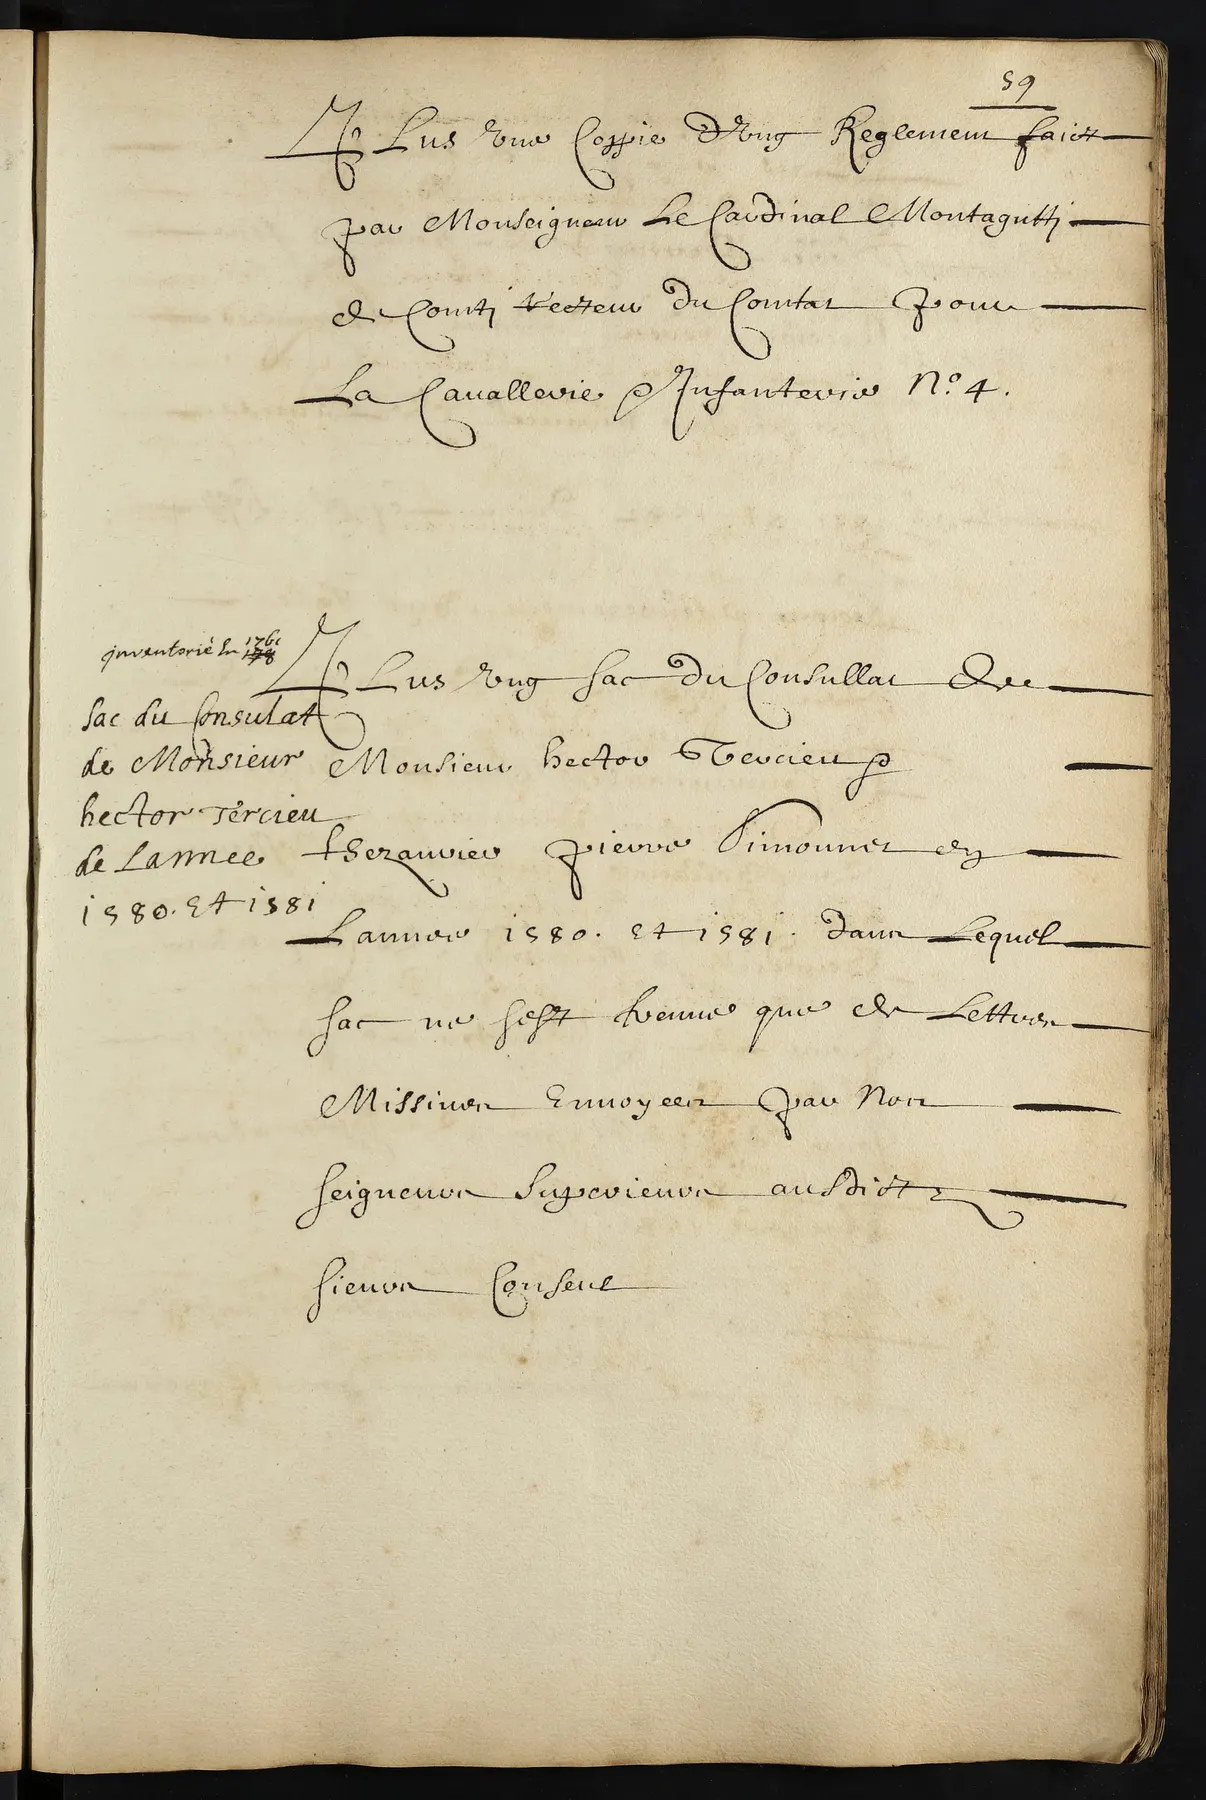 59
Plus une Coppie d'ung Reglement faict
par Monseigneur Le Cardinal Montagutti
de Comti Recteur du Comtat pour
La Cavallerie & Infanterie N.º 4.
inventorié en 1761
Plus ung sac du Consullat de
sac du Consulat
de Monsieur
hector Tercieu
de Lannee
1580. Et 1581
Monsieur hector Tercieu &
thezaurier pierre Simonnet en
Lannee 1580. Et 1581. dans Lequel
sac ne sest treuue que de Lettres
Missiues Enuoyees par Nos
seigneurs Superieurs ausdictz
sieurs Conseul